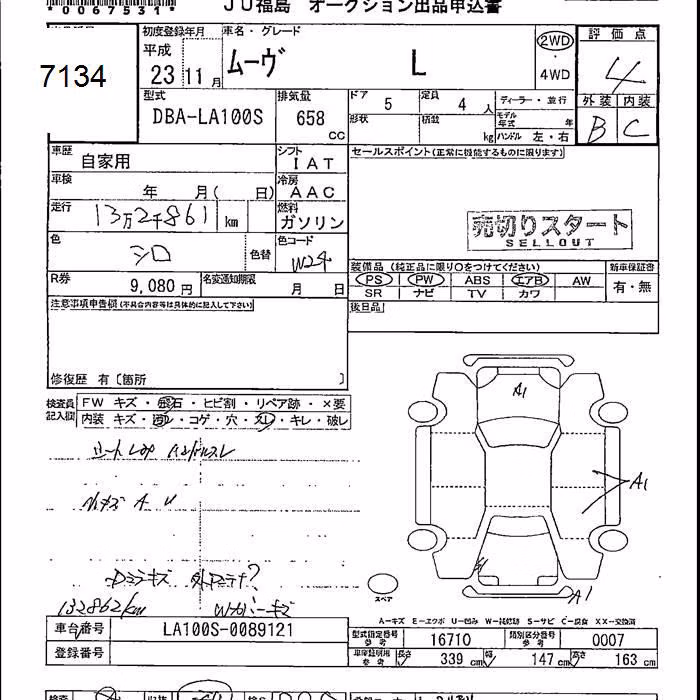 *0067531*
JU福島 オークション出品申込書
7134
初度登録年月 車名・グレード
平成 23 11月 ムーヴ L
2WD ・ 4WD
評価点 4
外装 内装
B C
型式 DBA-LA100S
排気量 658 CC
ドア 5 定員 4 人
形状 積載 kg
ディーラー・並行
モデル年式 年
ハンドル 左・右
車歴 自家用
シフト IAT
セールスポイント(正常に機能するものに限ります)
車検 年 月( 日)
冷房 AAC
走行 13万2千861 km
燃料 ガソリン
売切りスタート
SELLOUT
色 シロ 色替
色コード W24
装備品(純正品に限り○をつけてください) 新車保証書
PS PW ABS エアB AW 有・無
SR ナビ TV カワ
R券 9,080円 名変通知期限 月 日
後日品
注意事項申告欄(不具合内容等は具体的に記入して下さい)
修復歴 有〔箇所 〕
検査員記入欄
FW キズ・飛石・ヒビ割・リペア跡・×要
内装 キズ・汚レ・コゲ・穴・スレ・キレ・破レ
A1
A1
小キズ A U
132862km
Wカバーキズ
スペア
A1
A-キズ E-エクボ U-凹み W-補修跡 S-サビ C-腐食 XX-交換済
車台番号 LA100S-0089121
登録番号
型式指定番号 参考 16710 類別区分番号 参考 0007
車庫証明用 参考 長さ 339 cm 幅 147 cm 高さ 163 cm